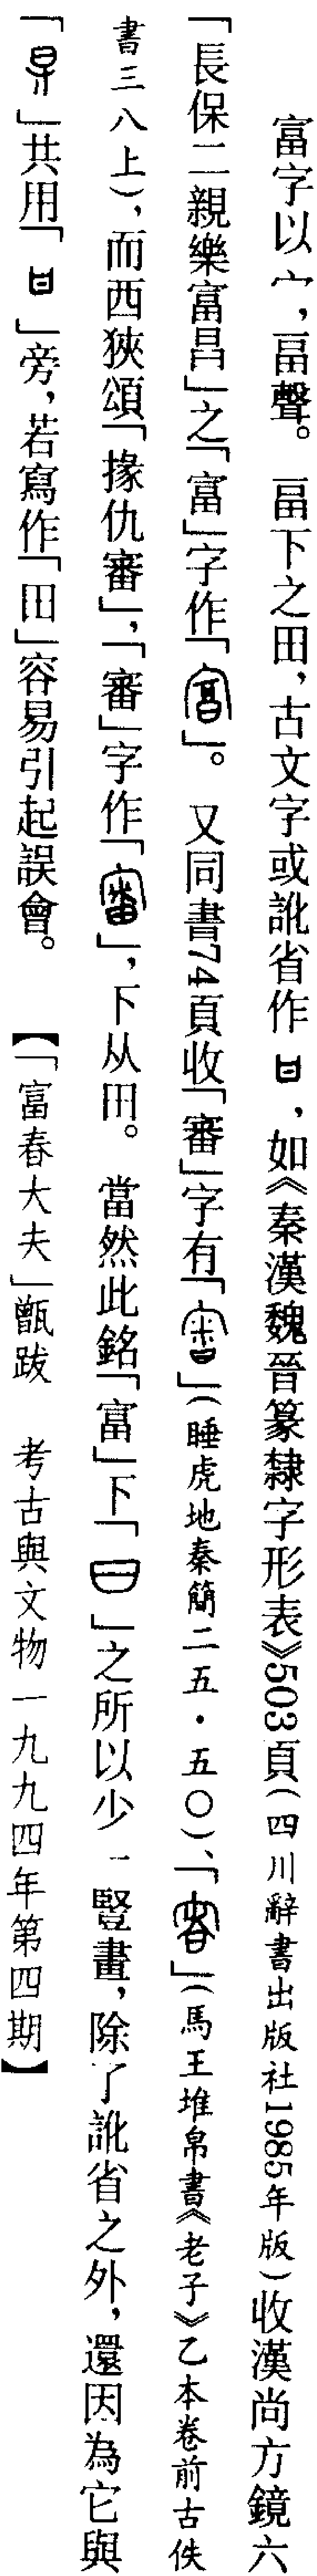 富字以宀，畐聲。畐下之田，古文字或訛省作日，如《秦漢魏晉篆隸字形表》503頁（四川辭書出版社1985年版）收漢尚方鏡六
「長保二親樂富昌」之「富」字作「」。又同書74頁收「審」字有「」（睡虎地秦簡二五·五〇）、「」（馬王堆帛書《老子》乙本卷前古佚
書三八上），而西狹頌「掾仇審」，「審」字作「」，下从田。當然此銘「富」下「日」之所以少一豎畫，除了訛省之外，還因為它與
「」共用「日」旁，若寫作「田」容易引起誤會。【「富春大夫」甑跋 考古與文物一九九四年第四期】